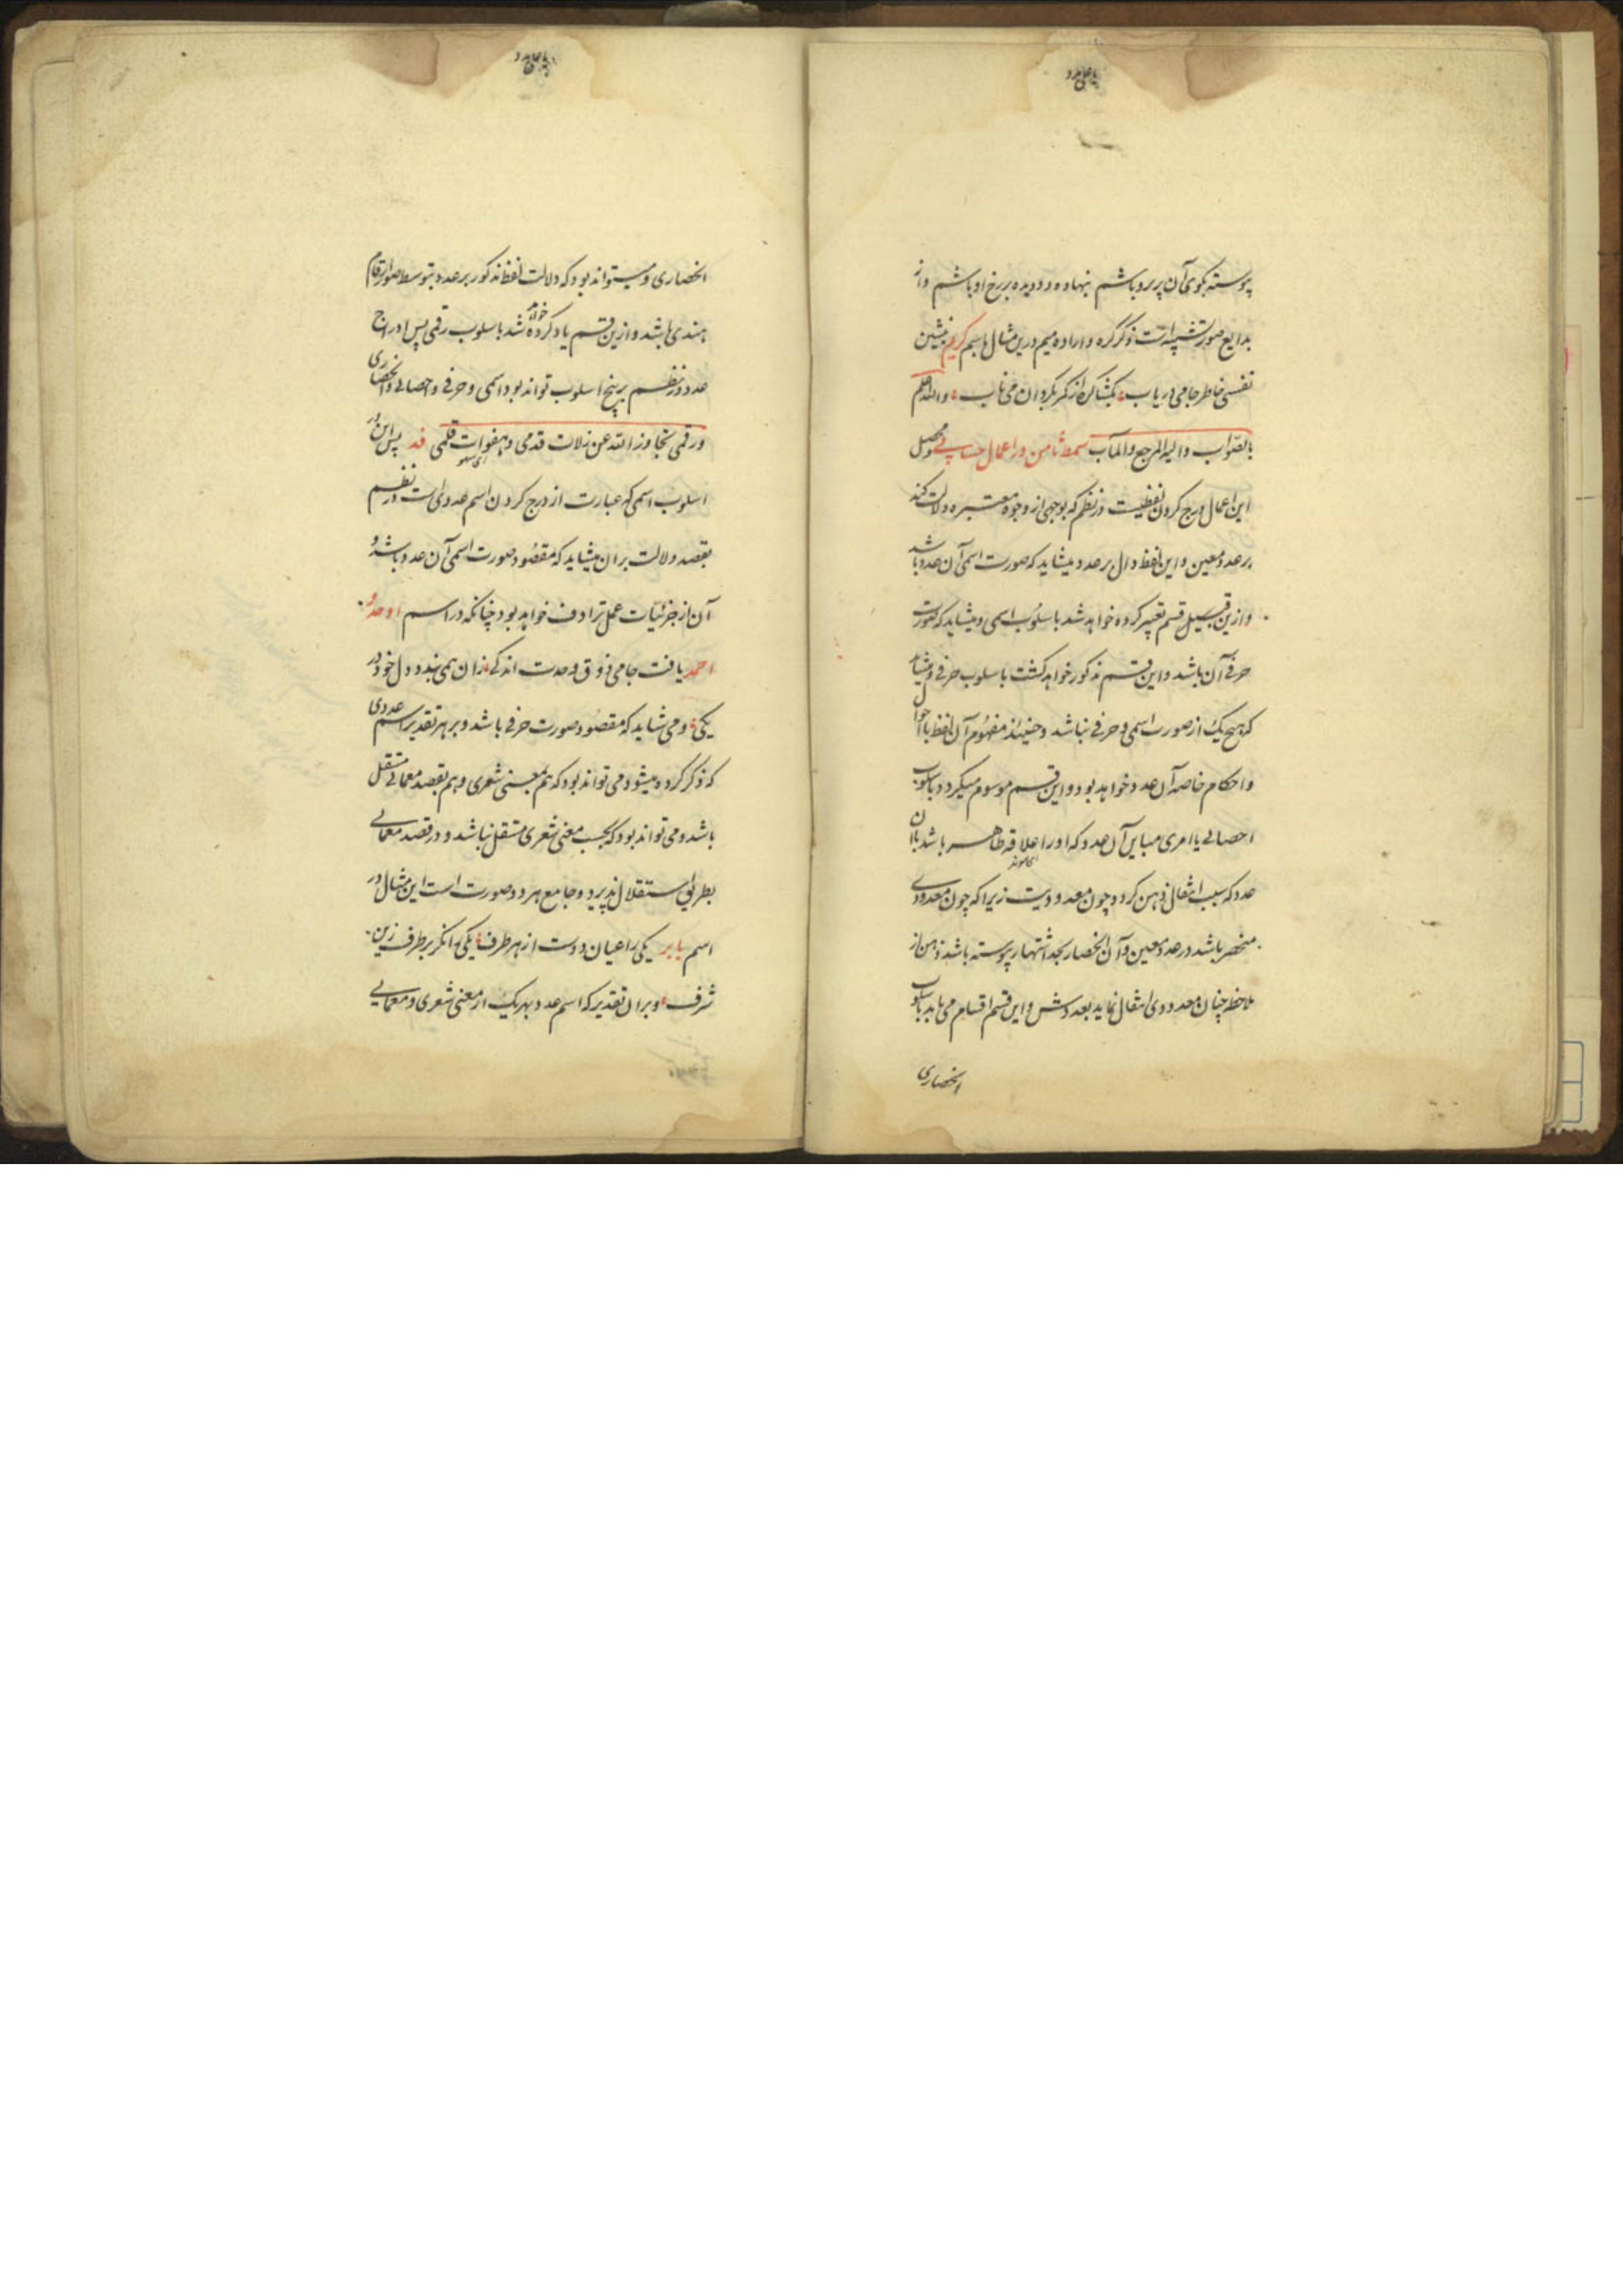 پیوسته بکوی آن پریرو باشم بنهاده دو دیده بر رخ او باشم و از
بدایع صور تشبیه است ذکر گره و اراده میم درین مثال باسم کریم بنشین
نفسی خاطر جامی دریاب بکشا گره از کمر بگردان می ناب والله اعلم
بالصواب والیه المرجع والمآب سمط ثامن در اعمال حسابی محصل
این اعمال درج کردن لفظیست در نظم که بوجهی از وجوه معتبره دلالت کند
بر عدد معین و این لفظ دال بر عدد میشاید که صورت اسمی آن عدد باشد
و ازین قبیل قسم تعبیر کرده خواهد شد باسلوب اسمی و میشاید که صورت
حرفی آن باشد و این قسم مذکور خواهد کشت باسلوب حرفی و میشاید
که هیچ یک از صورت اسمی و حرفی نباشد و حینئذ مفهوم آن لفظ یا احوال
و احکام خاصه آن عدد خواهد بود و این قسم موسوم میگردد باسلوب
احصائی یا امری مباین آن عدد که او را علاقه ظاهر باشد بآن
عدد که سبب انتقال ذهن گردد چون معدودیت زیرا که چون معدودی
منحصر باشد در عدد معین و آن انحصار بحد اشتهار پیوسته باشد ذهن از
ملاحظه چنان معدودی انتقال نماید بعددش و این قسم اقسام می یابد باسلوب
انحصاری
انحصاری و میتواند بود که دلالت لفظ مذکور بر عدد بتوسط صور ارقام
هندی باشد و ازین قسم یاد کرده خواهد شد باسلوب رقمی پس ادراج
عدد در نظم بر پنج اسلوب تواند بود اسمی و حرفی و احصائی و انحصاری
و رقمی تجاوز الله عن زلات قدمی و هفوات قلمی قد پس این در
اسلوب اسمی که عبارت از درج کردن اسم عددی است در نظم
بقصد دلالت بر آن میشاید که مقصود صورت اسمی آن عدد باشد و
آن از جزئیات عمل ترادف خواهد بود چنانکه در اسم اوحد و
احمد یافت جامی ذوق وحدت اندکی زان همی بندد دل خود در
یکی و می شاید که مقصود صورت حرفی باشد و بر هر تقدیر اسم عددی
که ذکر کرده میشود می تواند بود که هم بمعنی شعری و هم بقصد معمائی مستقل
باشد و می تواند بود که بحسب معنی شعری مستقل نباشد و در قصد معمائی
بطریق استقلال پذیرد و جامع هر دو صورت است این مثال در
اسم بابر یکی را عیان دوست از هر طرف یکی انگر بر طرف زین
شرف و بر آن تقدیر که اسم عدد بهر یک از معنی شعری و معمایی